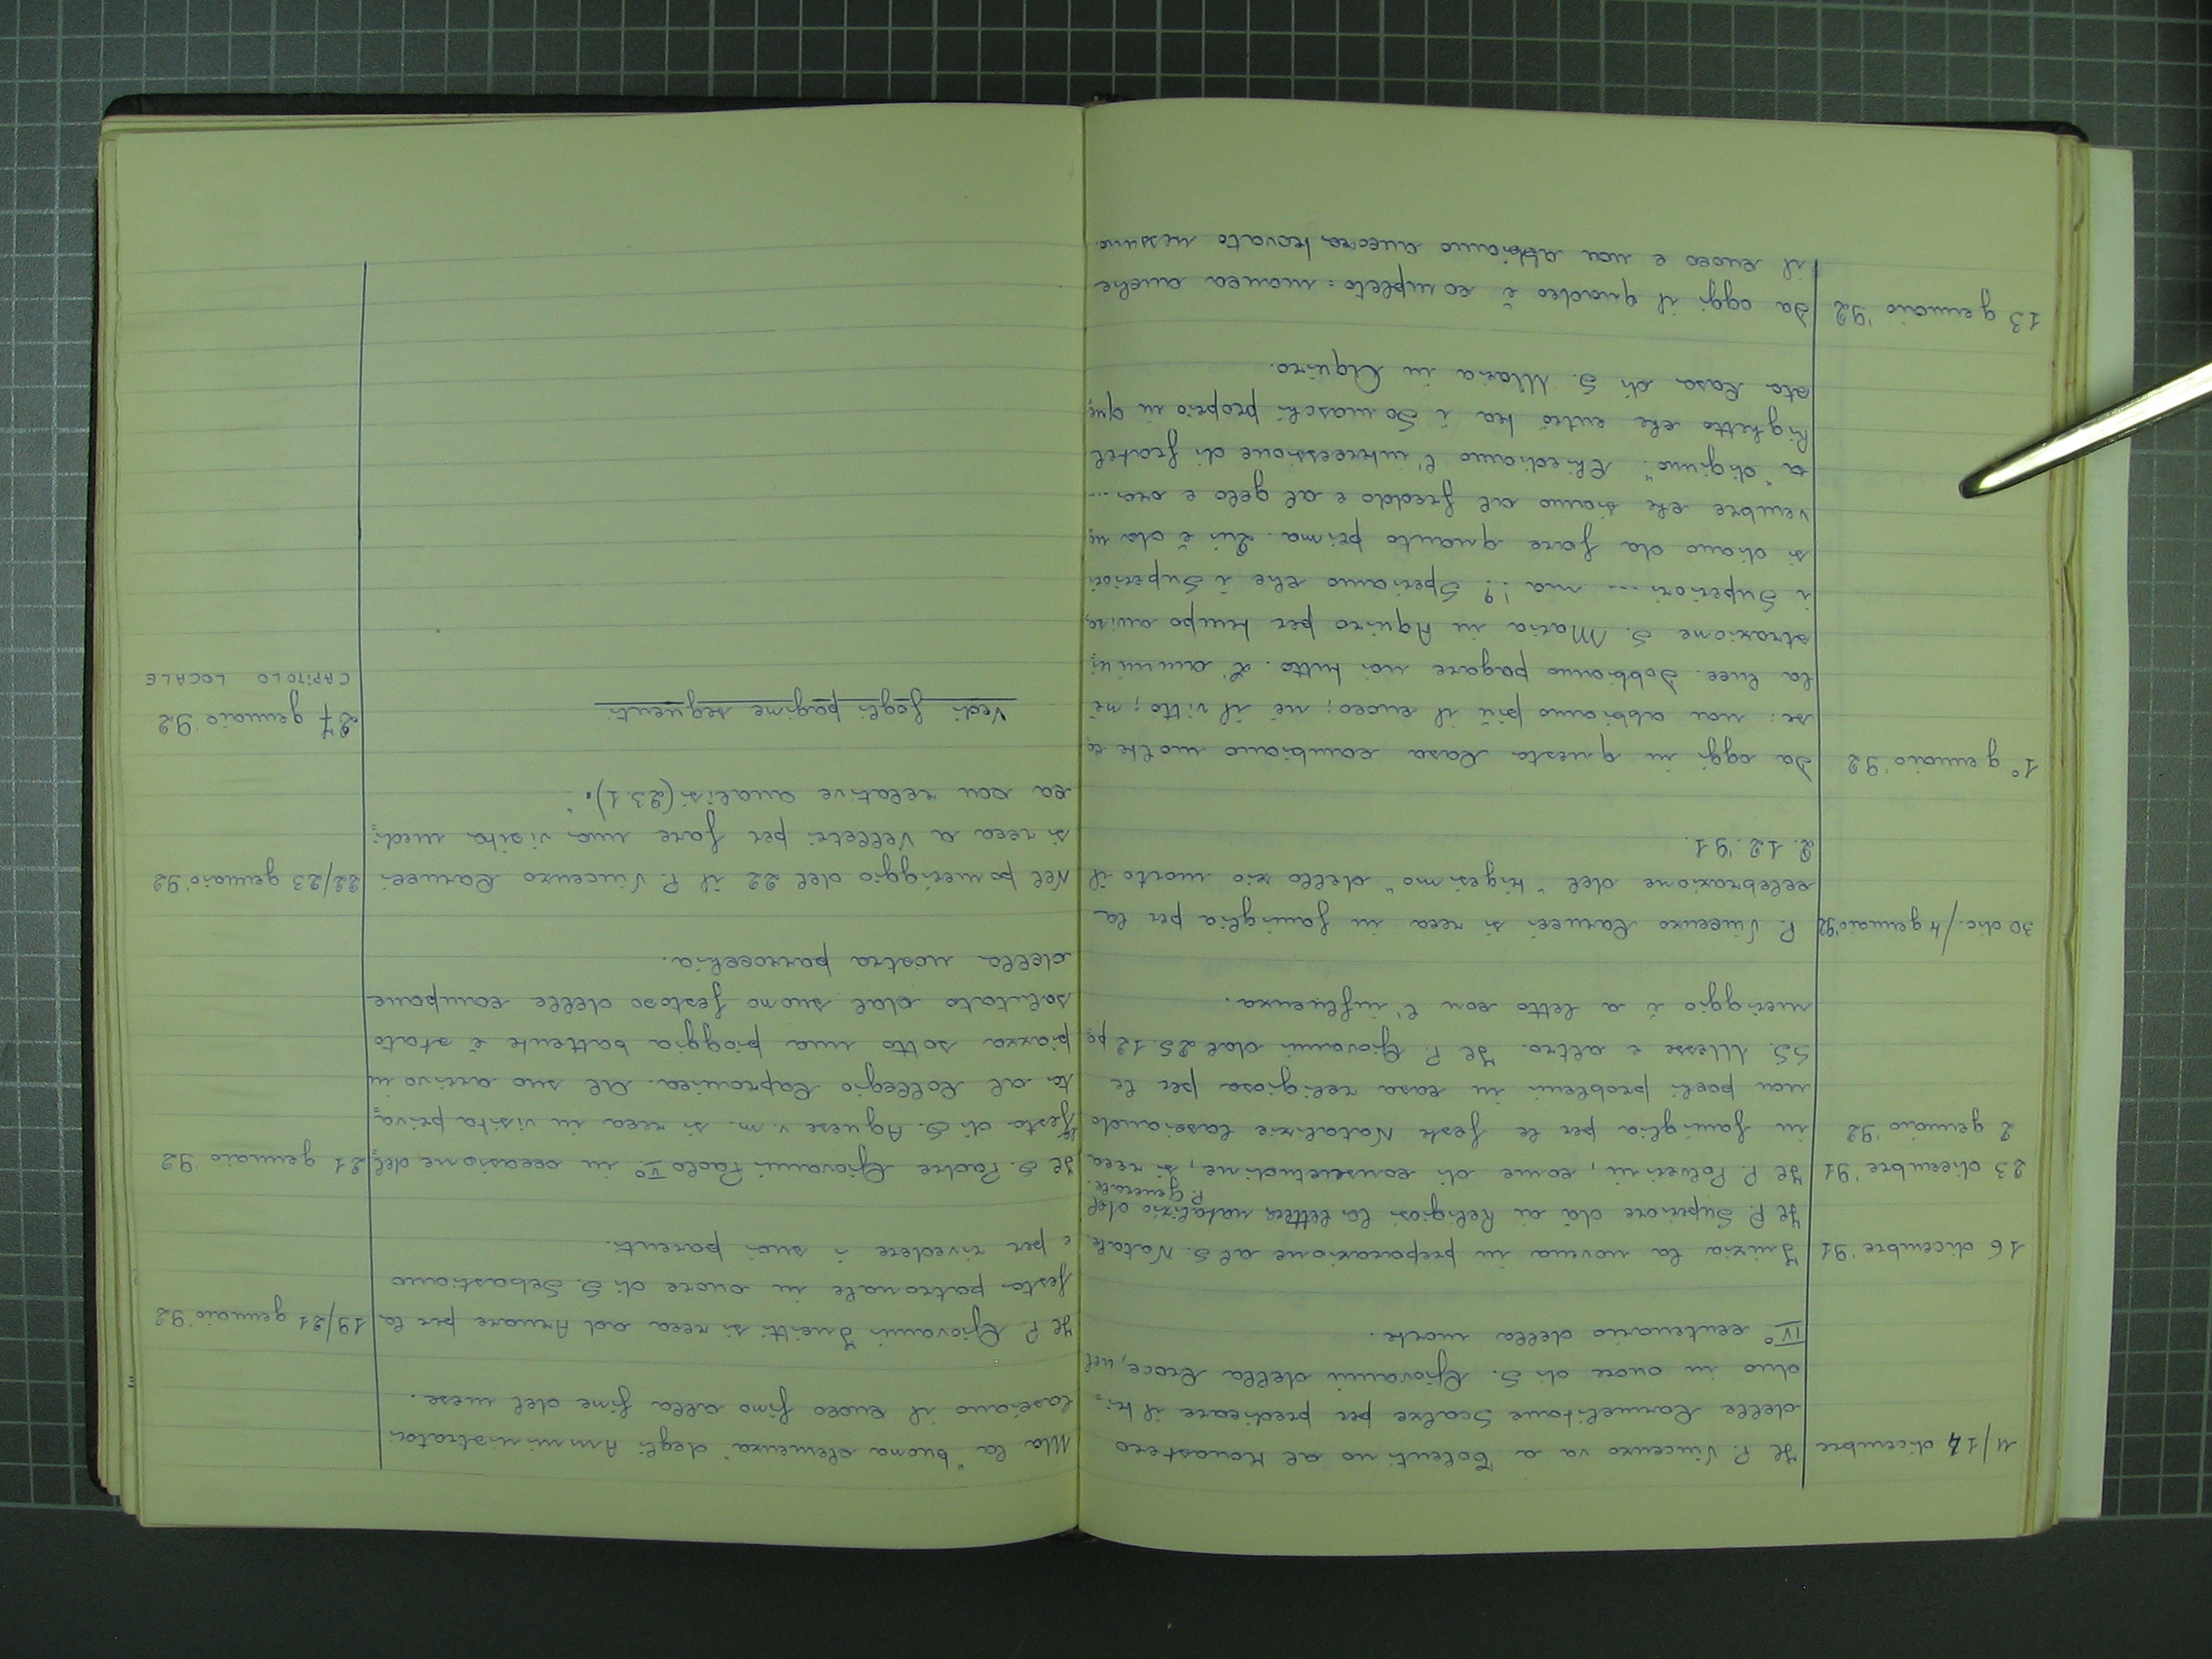 11/14 dicembre Il P. Vincenzo va a Tolentino al Monastero
delle Carmelitane Scalze per predicare il tri=
duo in onore di S. Giovanni della Croce, nel
IV° centenario della morte.
16 dicembre '91 Inizia la novena in preparazione al S. Natale.
Il P. Superiore dà ai Religiosi la lettera natalizia del
P. Generale.
23 dicembre '91 Il P. Polverini, come di consuetudine, si reca
2 gennaio '92 in famiglia per le feste Natalizie lasciando
non pochi problemi in casa religiosa per le
SS. Messe e altro. Il P. Giovanni dal 25.12 po
meriggio è a letto con l'influenza.
30 dic./4 gennaio '92 P. Vincenzo Carucci si reca in famiglia per la
celebrazione del "trigesimo" dello zio morto il
2.12.'91.
1° gennaio '92 Da oggi in questa Casa cambiano molte co
se: non abbiamo più il cuoco; né il vitto; né
la luce. Dobbiamo pagare noi tutto. L'ammini
strazione S. Maria in Aquiro per tempo avvisò
i Superiori ... ma !? Speriamo che i Superiori
si diano da fare quanto prima. Qui è da no
vembre che siamo al freddo e al gelo e ora ...
a "digiuno". Chiediamo l'intercessione di fratel
Righetto che entrò tra i Somaschi proprio in que
sta Casa di S. Maria in Aquiro.
13 gennaio '92 Da oggi il quadro è completo: manca anche
il cuoco e non abbiamo ancora trovato nessuno.
Ma la "buona clemenza" degli Amministratori
lasciano il cuoco fino alla fine del mese.
Il P. Giovanni Incitti si reca ad Arnara per la 19/21 gennaio '92
festa patronale in onore di S. Sebastiano
e per rivedere i suoi parenti.
Il S. Padre Giovanni Paolo II° in occasione del 21 gennaio '92
la
festa di S. Agnese v. m. si reca in visita priva
ta al Collegio Capranica. Al suo arrivo in
piazza sotto una pioggia battente è stato
salutato dal suono festoso delle campane
della nostra parrocchia.
Nel pomeriggio del 22 il P. Vincenzo Carucci 22/23 gennaio '92
si reca a Velletri per fare una visita medi=
ca con relative analisi (23.1).
Vedi fogli pagine seguenti 27 gennaio '92
CAPITOLO LOCALE